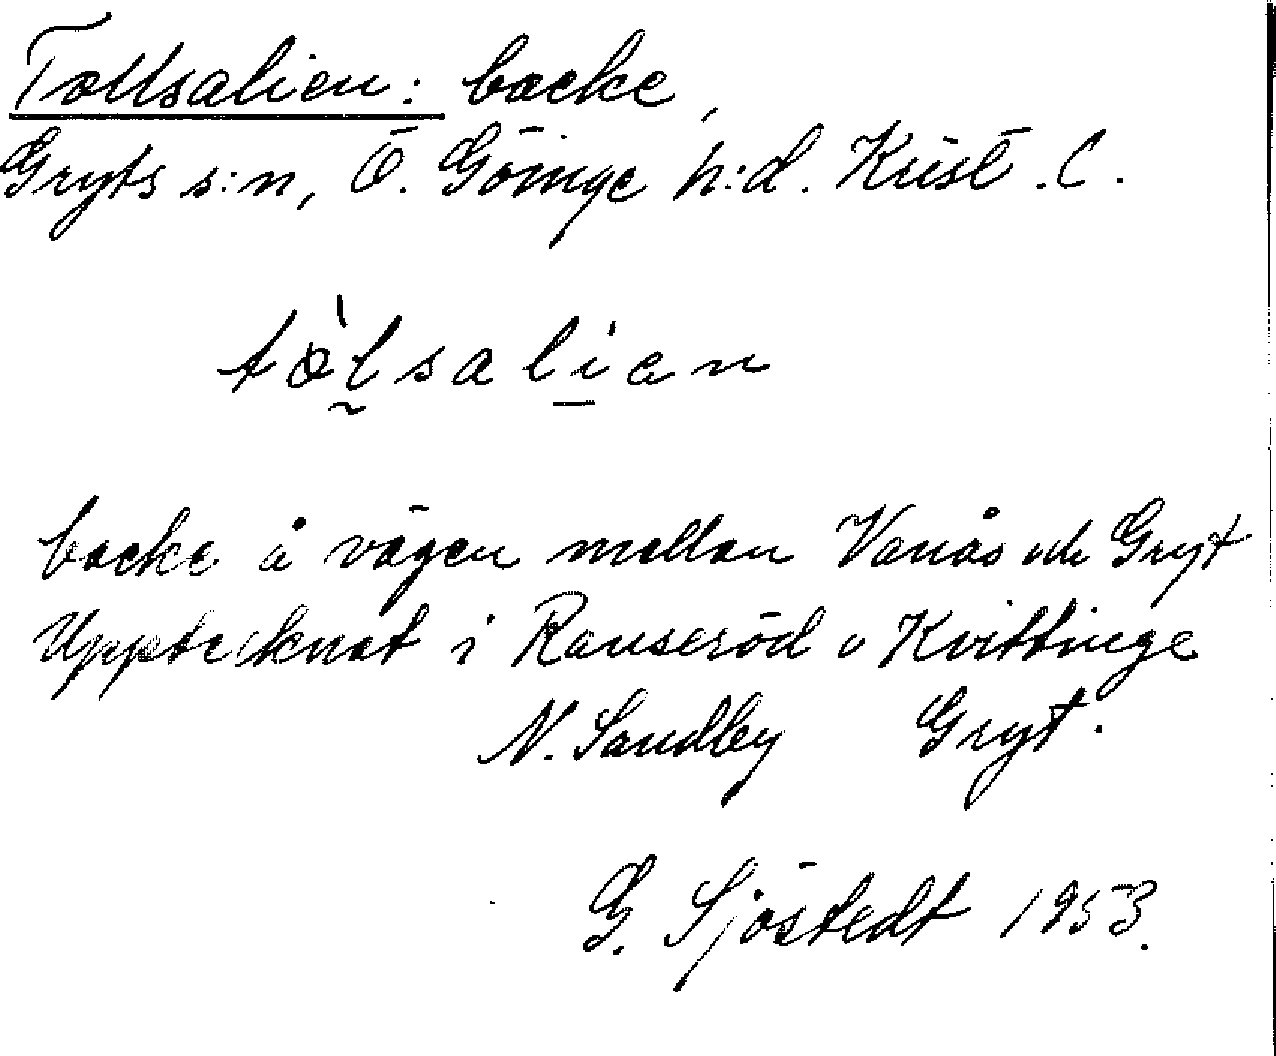 Tollsalien: backe,
Gryts s:n, Ö. Göinge h:d. Krist. C.
tòlsalien
backe å vägen mellan Vanås och Gryt
Upptecknat i Ranseröd o Kvittinge
N. Sandby Gryt.
G. Sjöstedt 1953.